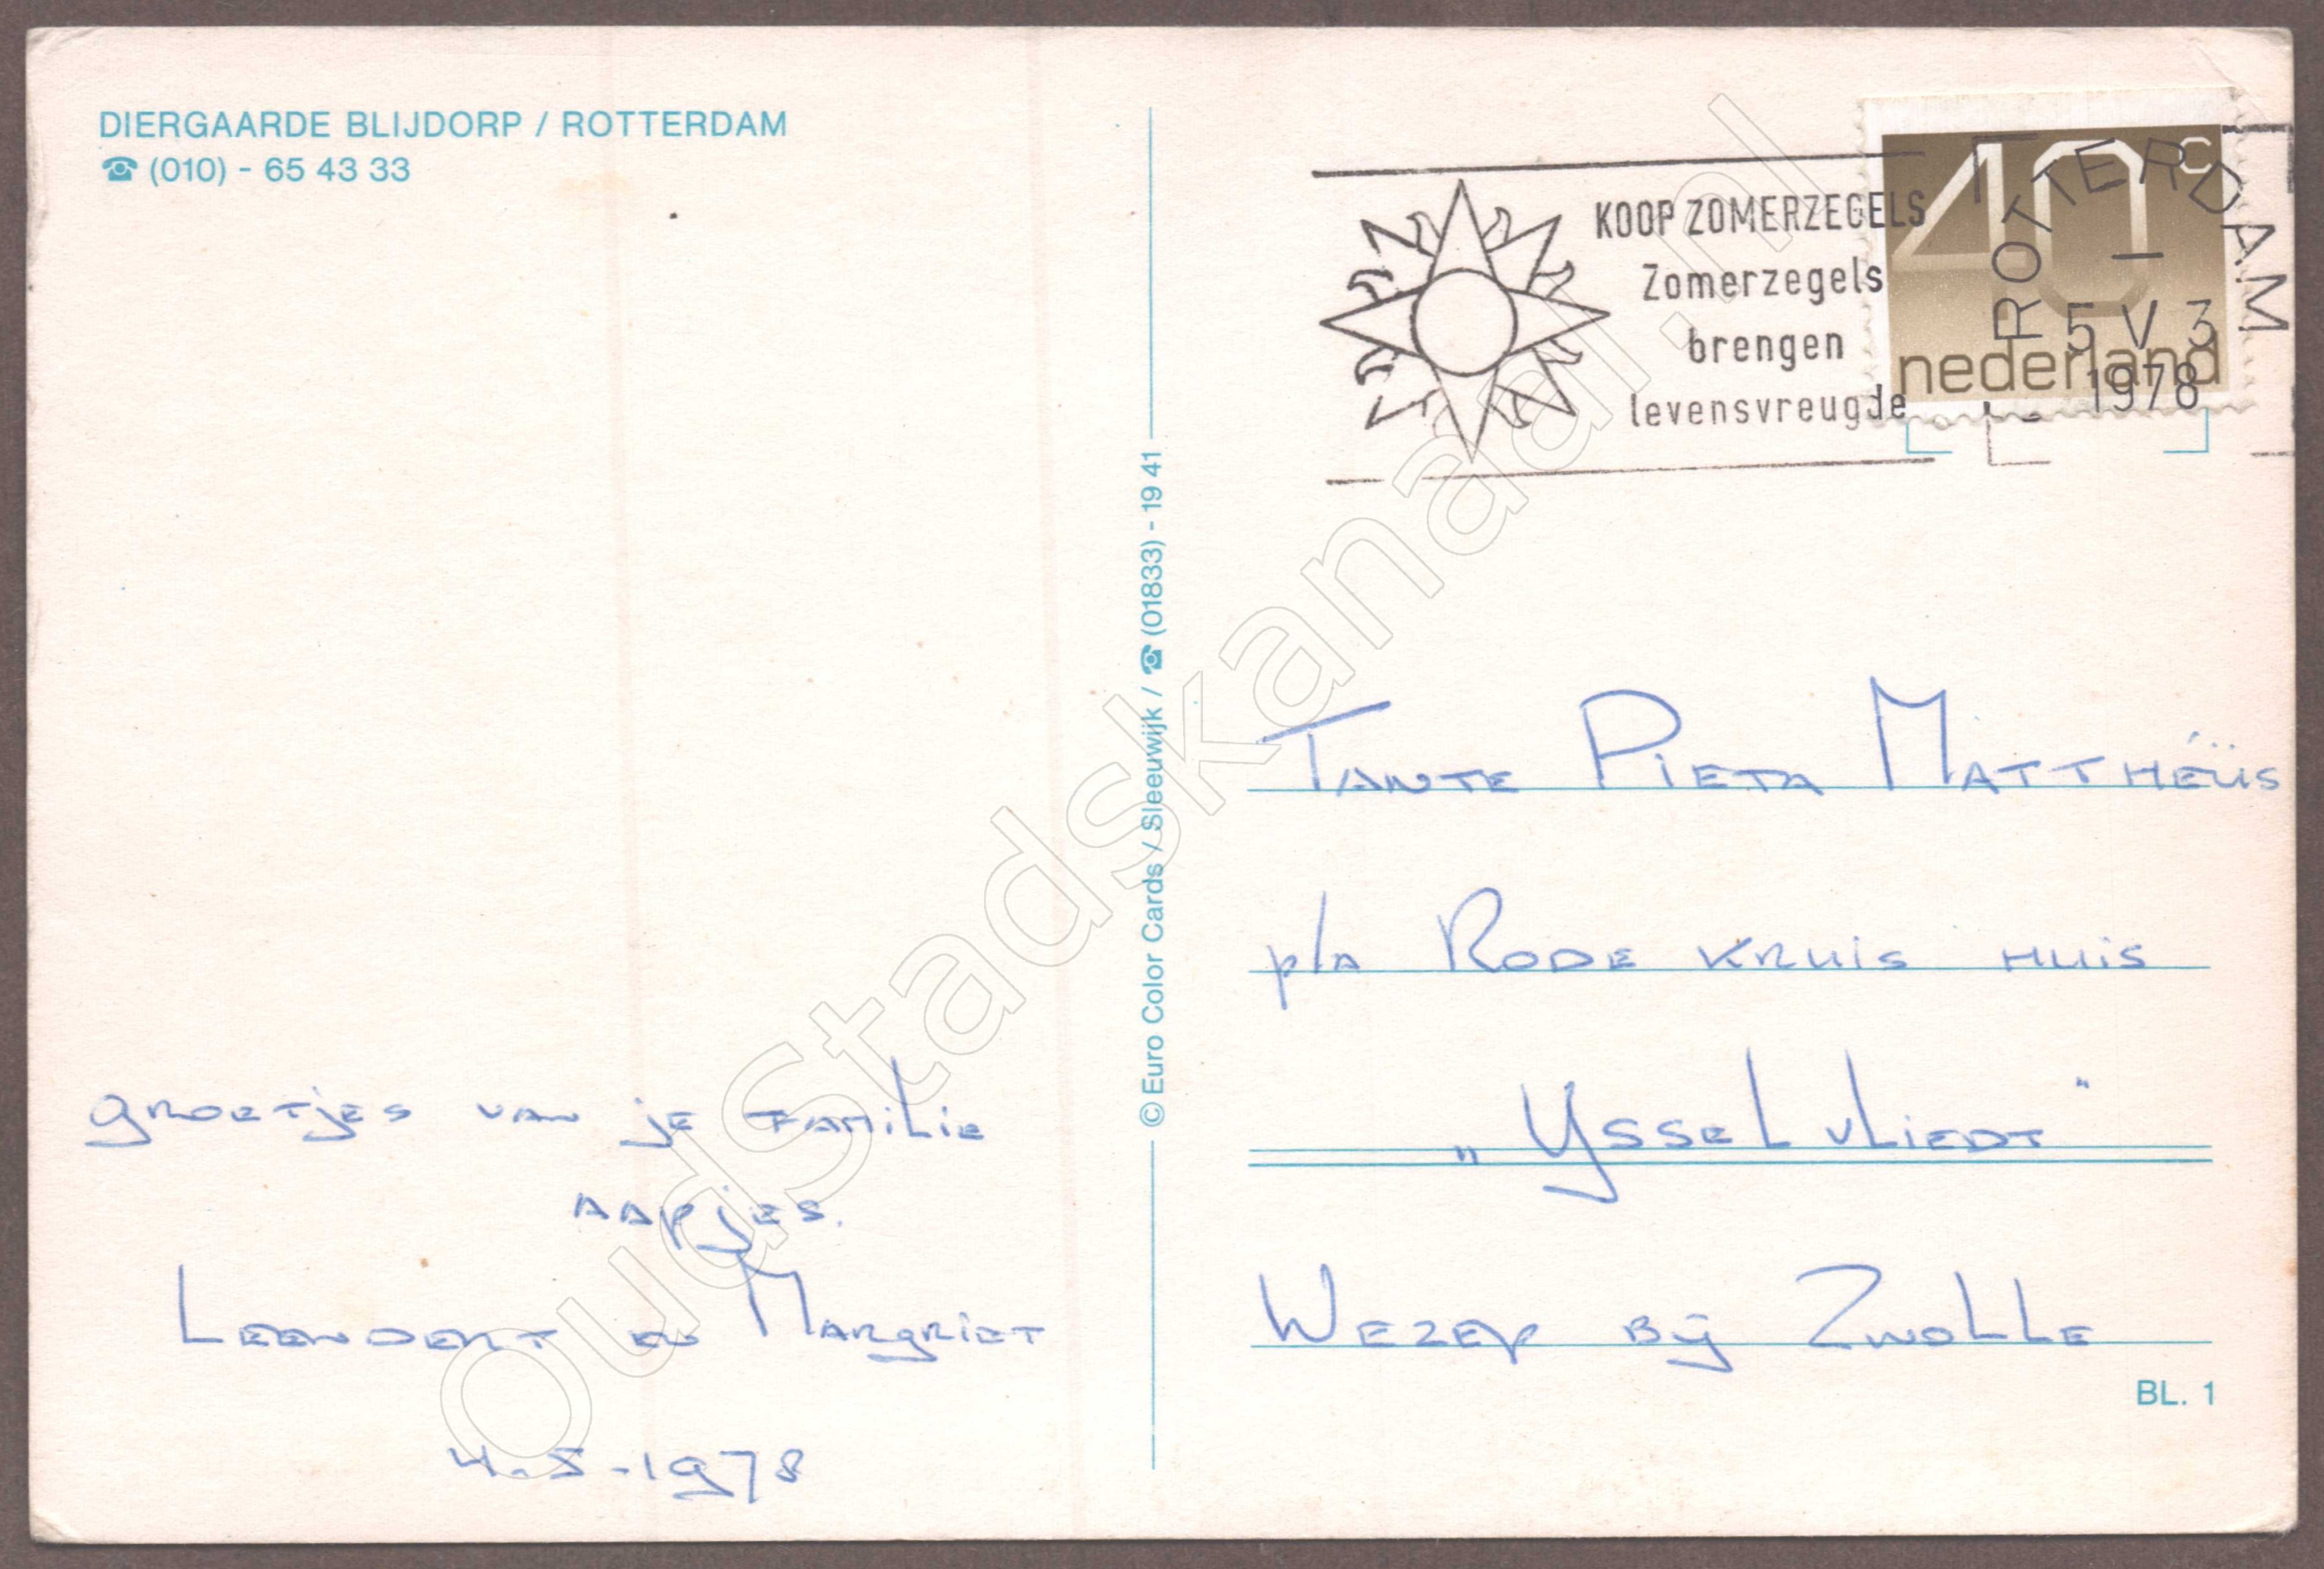 DIERGAARDE BLIJDORP / ROTTERDAM
☎ (010) - 65 43 33
groetjes van je familie
aapjes.
Leendert en Margriet
4-5-1978
© Euro Color Cards / Sleeuwijk / ☎ (01833) - 19 41
KOOP ZOMERZEGELS
Zomerzegels
brengen
levensvreugde
40c
nederland
ROTTERDAM
5 V 3
1978
Tante Pieta Matthëüs
p/a Rode Kruis Huis
„Ysselvliedt"
Wezep bij Zwolle
BL. 1
OudStadskanaal.nl